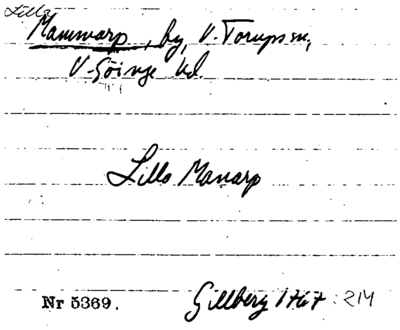 Lilla
Mammarp, by, V. Torups sn,
V. Göinge hd.
Lilla Manarp
Nr 5369.
Gillberg 1767: 214